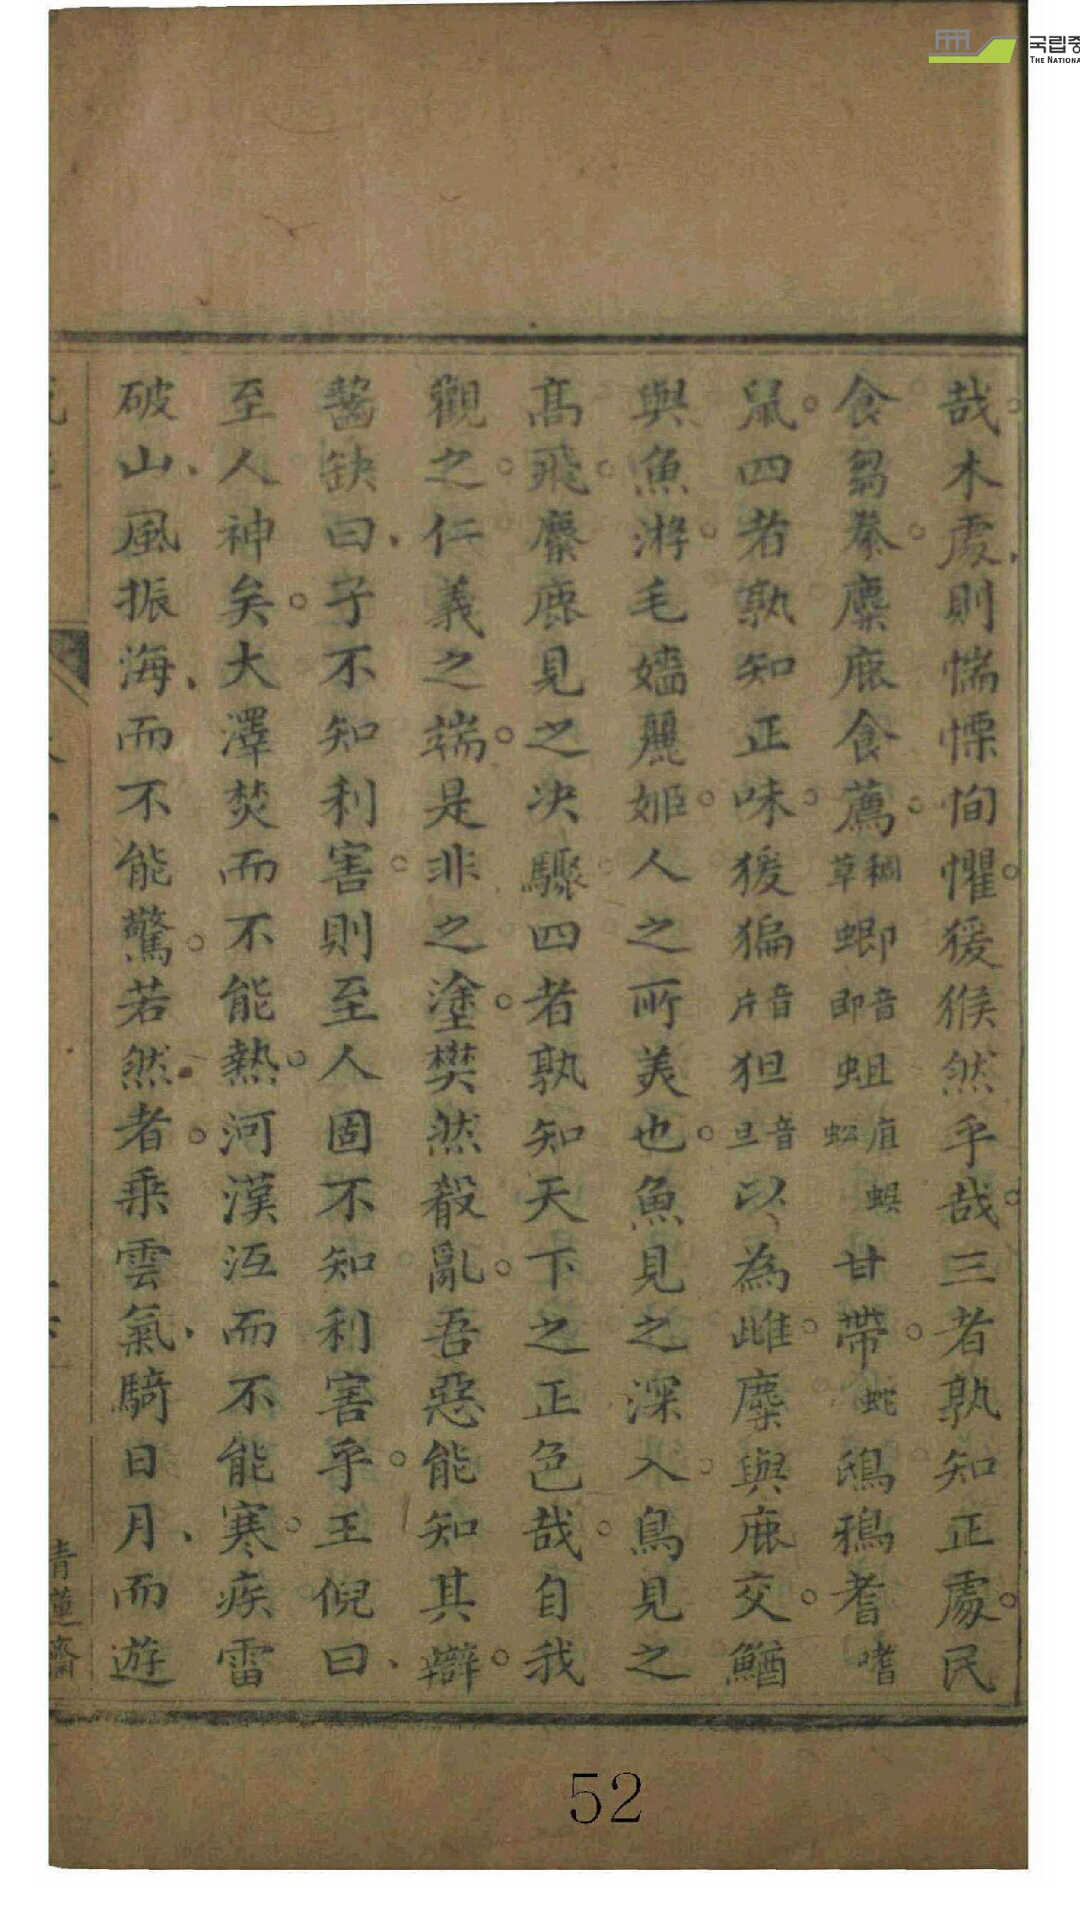 哉木處則惴慄恂懼猨猴然乎哉三者孰知正處民
食芻豢麋鹿食薦稠草蝍音即蛆疽蚣蜈甘帶蛇鴟鴉耆嗜
鼠四者孰知正味猨猵音片狙音旦以為雌麋與鹿交鰌
與魚游毛嬙麗姬人之所美也魚見之深入鳥見之
髙飛麋鹿見之决驟四者孰知天下之正色哉自我
觀之仁義之端是非之塗樊然殽亂吾惡能知其辯
齧缺曰子不知利害則至人固不知利害乎王倪曰
至人神矣大澤焚而不能熱河漢沍而不能寒疾雷
破山風振海而不能驚若然者乘雲氣騎日月而遊
青蓮齋
52
국립중
THE NATIONA